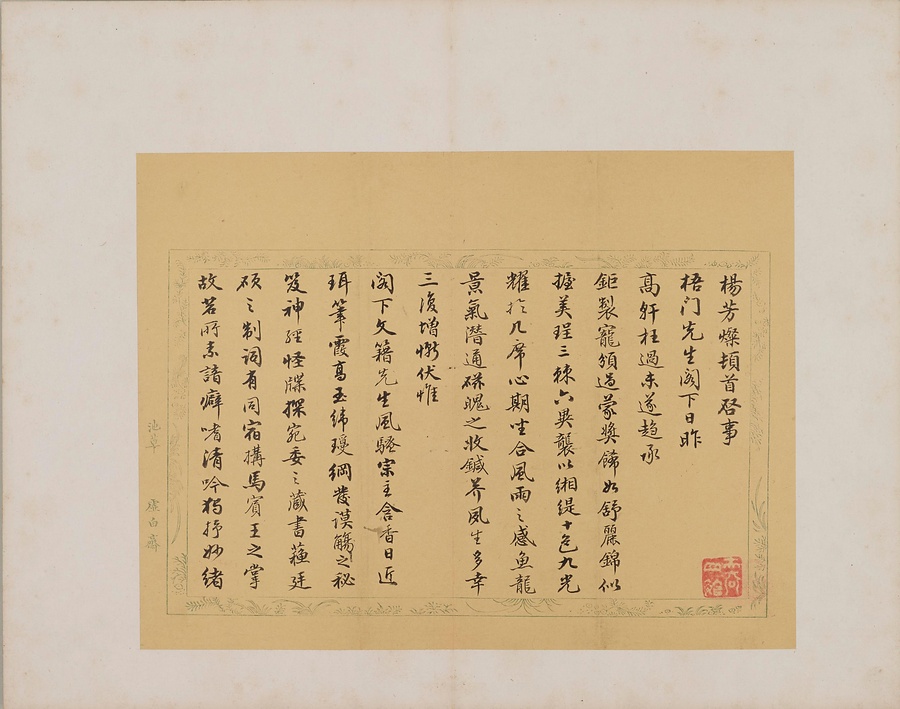 楊芳燦頓首啓事
梧门先生阁下日昨
高軒枉過未遂趨承
鉅製寵頒過蒙奬飾如舒麗錦似
握美珵三棘六異襲以緗緹十色九光
耀於几席心期坐合風雨之感魚龍
景氣潛通磁魄之收鍼芥夙生多幸
三復增慚伏惟
阁下文籍先生風騷宗主含香日近
珥筆霞高玉緯瓊綱發謨觴之秘
笈神經怪牒探宛委之藏書蘓廷
碩之制詞有同宿搆馬賓王之掌
故若所素諳癖嗜清吟獨抒妙緒
池草
虛白齋